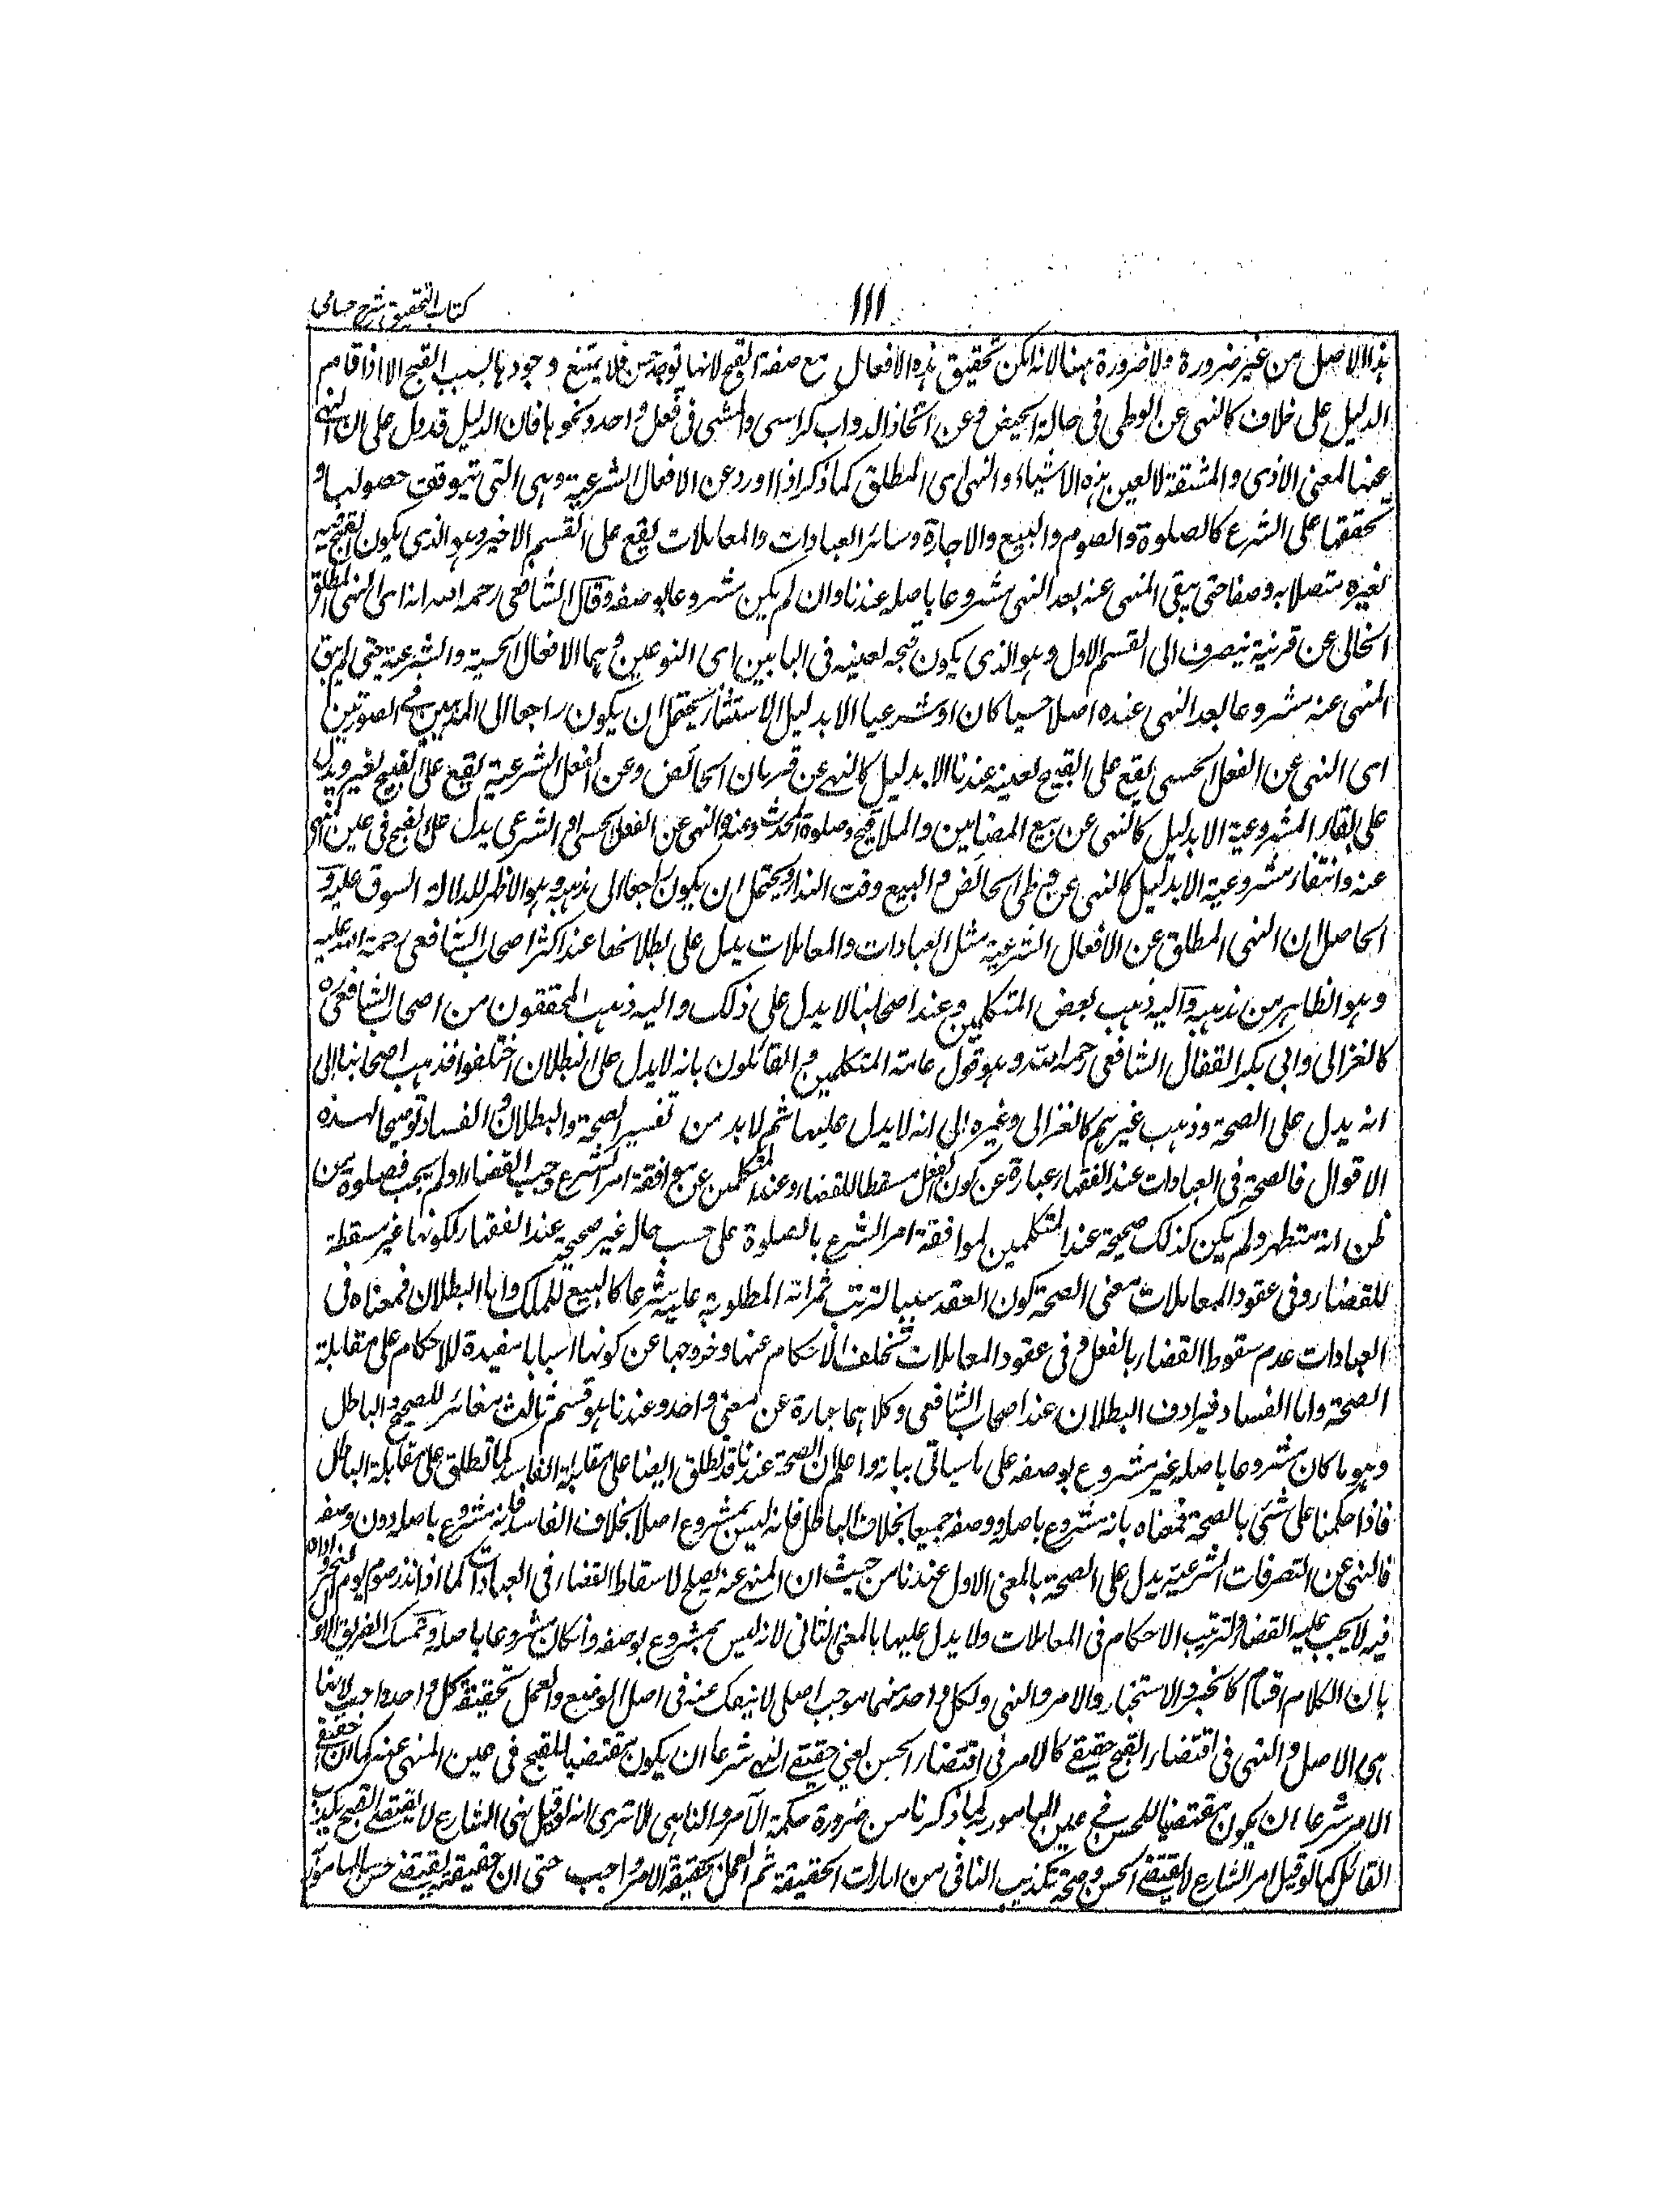 كتاب التحقيق شرح حسامى
١١١
هذا الاصل من غير ضرورة ولا ضرورة ههنا لانه امكن تحقيق هذه الافعال مع صفة القبح لانها توجد حسا فلا يمتنع وجودها بسبب القبح الا اذا قام
الدليل على خلاف كالنهى عن الوطى فى حالة الحيض وعن اتخاذ الدواب كراسى والمشى فى نعل واحد ونحوها فان الدليل قد دل على ان النهى
عنها لمعنى الاذى والمشقة لا لعين هذه الاشياء والنهى اى المطلق كما ذكر اذا ورد عن الافعال الشرعية وهى التى تتوقف حصولها و
تحققها على الشرع كالصلوة والصوم والبيع والاجارة وسائر العبادات والمعاملات يقع على القسم الاخير وهو الذى يكون القبح فيه
لغيره متصلا به وصفا حتى يبقى المنهى عنه بعد النهى مشروعا باصله عندنا وان لم يكن مشروعا بوصفه وقال الشافعى رحمه الله انه اى النهى المطلق
الخالى عن قرينة ينصرف الى القسم الاول وهو الذى يكون قبحه لعينه فى البابين اى النوعين وهما الافعال الحسية والشرعية حتى لم يبق
المنهى عنه مشروعا بعد النهى عنده اصلا حسيا كان او شرعيا الا بدليل الاستثناء يحتمل ان يكون راجعا الى المذهبين فى الصورتين
اى النهى عن الفعل الحسى يقع على القبيح لعينه عندنا الا بدليل كالنهى عن قربان الحائض وعن الفعل الشرعية يقع على القبيح لغيره ويدل
على بقاء المشروعية الا بدليل كالنهى عن بيع المضامين والملاقيح وصلوة المحدث وعنده النهى عن الفعل الحسى او الشرعى يدل على القبح فى عين المنهى
عنه وانتفاء مشروعية الا بدليل كالنهى عن وطى الحائض والبيع وقت النداء ويحتمل ان يكون راجعا الى مذهبه وهو الاظهر لدلالة السوق عليه و
الحاصل ان النهى المطلق عن الافعال الشرعية مثل العبادات والمعاملات يدل على بطلانها عند اكثر اصحاب الشافعى رحمة الله عليه
وهو الظاهر من مذهبه واليه ذهب بعض المتكلمين وعند اصحابنا لا يدل على ذلك واليه ذهب المحققون من اصحاب الشافعى رح
كالغزالى وابى بكر القفال الشافعى رحمه الله وهو قول عامة المتكلمين والقائلون بانه لا يدل على البطلان اختلفوا فذهب اصحابنا الى
انه يدل على الصحة وذهب غيرهم كالغزالى وغيره الى انه لا يدل عليها ثم لا بد من تفسير الصحة والبطلان والفساد توضيحا لهذه
الاقوال فالصحة فى العبادات عند الفقهاء عبارة عن كون الفعل مسقطا للقضاء وعند المتكلمين عن موافقة امر الشرع وجب القضاء او لم يجب فصلوة من
ظن انه متطهر ولم يكن كذلك صحيحة عند المتكلمين لموافقة امر الشرع بالصلوة على حسب حاله غير صحيحة عند الفقهاء لكونها غير مسقطة
للقضاء وفى عقود المعاملات معنى الصحة كون العقد سببا لترتب ثمراته المطلوبة عليه شرعا كالبيع للملك واما البطلان فمعناه فى
العبادات عدم سقوط القضاء بالفعل وفى عقود المعاملات تخلف الاحكام عنها وخروجها عن كونها اسبابا مفيدة للاحكام على مقابلة
الصحة واما الفساد فيرادف البطلان عند اصحاب الشافعى وكلاهما عبارة عن معنى واحد وعندنا هو قسم ثالث مغائر للصحيح والباطل
وهو ما كان مشروعا باصله غير مشروع بوصفه على ما سياتى بيانه واعلم ان الصحة عندنا قد تطلق ايضا على مقابلة الفاسد كما تطلق على مقابلة الباطل
فاذا حكمنا على شئ بالصحة فمعناه بانه مشروع باصله ووصفه جميعا بخلاف الباطل فانه ليس بمشروع اصلا بخلاف الفاسد فانه مشروع باصله دون وصفه
فالنهى عن التصرفات الشرعية يدل على الصحة بالمعنى الاول عندنا من حيث ان المنهى عنه يصلح لاسقاط القضاء فى العبادات كما اذا نذر صوم يوم النحر واداه
فيه لا يجب عليه القضاء ولترتب الاحكام فى المعاملات ولا يدل عليها بالمعنى الثانى لانه ليس بمشروع بوصفه وان كان مشروعا باصله وتمسك الفريق الاول
بان الكلام اقسام كالخبر والاستخبار والامر والنهى ولكل واحد منهما موجب اصلى لا ينفك عنه فى اصل الوضع والعمل بحقيقة كل واحد واجب لانها
هى الاصل والنهى فى اقتضاء القبح حقيقة كالامر فى اقتضاء الحسن يعنى حقيقة النهى شرعا ان يكون مقتضيا للقبح فى عين المنهى عنه كما ان حقيقة
الامر شرعا ان يكون مقتضيا للحسن فى عين المامور به لما ذكرنا من ضرورة حكمة الآمر والناهى الا ترى انه لو قيل نهى الشارع لا يقتضى القبح يكذب
القائل كما لو قيل امر الشارع لا يقتضى الحسن وصحة تكذيب النافى من امارات الحقيقة ثم العمل بحقيقة الامر واجب حتى ان حقيقته يقتضى حسن المامور